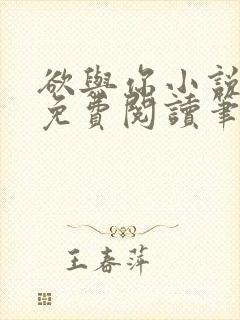 欲與你小說
免費閱讀筆
王春萍